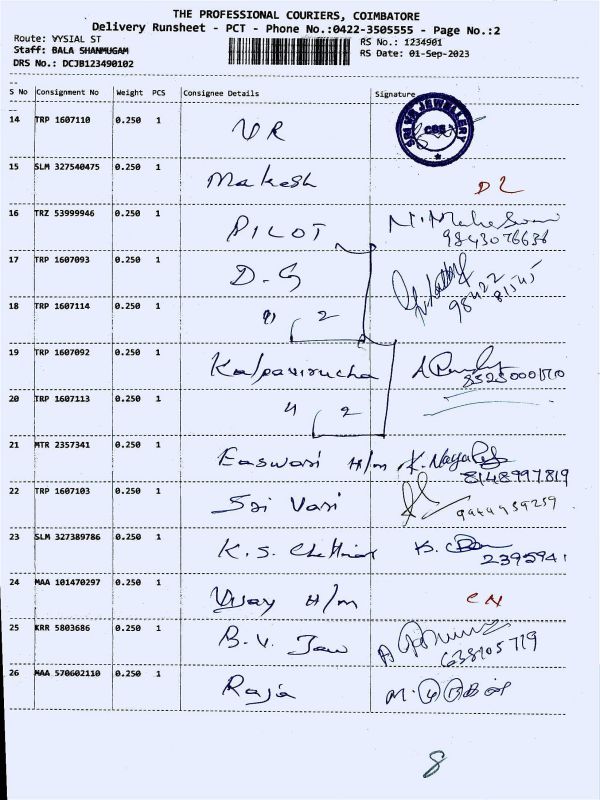 THE PROFESSIONAL COURIERS, COIMBATORE
Delivery Runsheet - PCT - Phone No.:0422-3505555 - Page No.:2
Route: VYSIAL ST RS No.: 1234901
Staff: BALA SHANMUGAM RS Date: 01-Sep-2023
DRS No.: DCJB123490102
S No Consignment No Weight PCS Consignee Details Signature
SRI VR JEWELLERY CBE
14 TRP 1607110 0.250 1 VR
15 SLM 327540475 0.250 1 Makesh D L
16 TRZ 53999946 0.250 1 PILOT
9843076636
17 TRP 1607093 0.250 1 D.G
98422
81545
18 TRP 1607114 0.250 1 2
19 TRP 1607092 0.250 1 Kalpavirucha
20 TRP 1607113 0.250 1 2
21 MTR 2357341 0.250 1 Easwari H/m
8148997819
22 TRP 1607103 0.250 1 Sri Vari
23 SLM 327389786 0.250 1 K.S. Chettiar
2395941
24 MAA 101470297 0.250 1 Vijay H/m CN
25 KRR 5803686 0.250 1 B.V. Jew
26 MAA 570602110 0.250 1 Raja
8